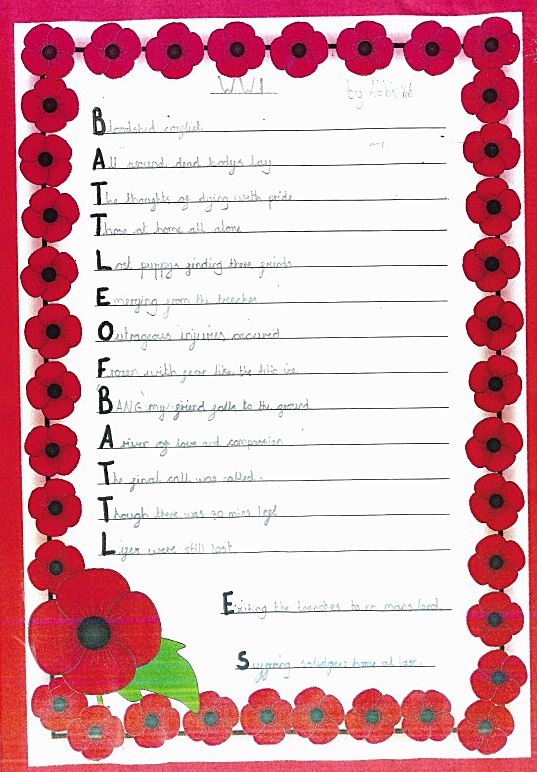 WW1
by
Bloodshed conflict
All around dead bodys lay
The thoughts of dying with pride
Those at home all alone
Lost puppys finding there freinds
Emerging from the trenches
Outrageous injuries occured
Frozen with fear like the
"BANG" my friend falls to the ground
A river of love and compassion
The final call was called.
Though there was 30 mins left
Lifes were still lost
Exiting the trenches to no mans land
Suffering home at last.